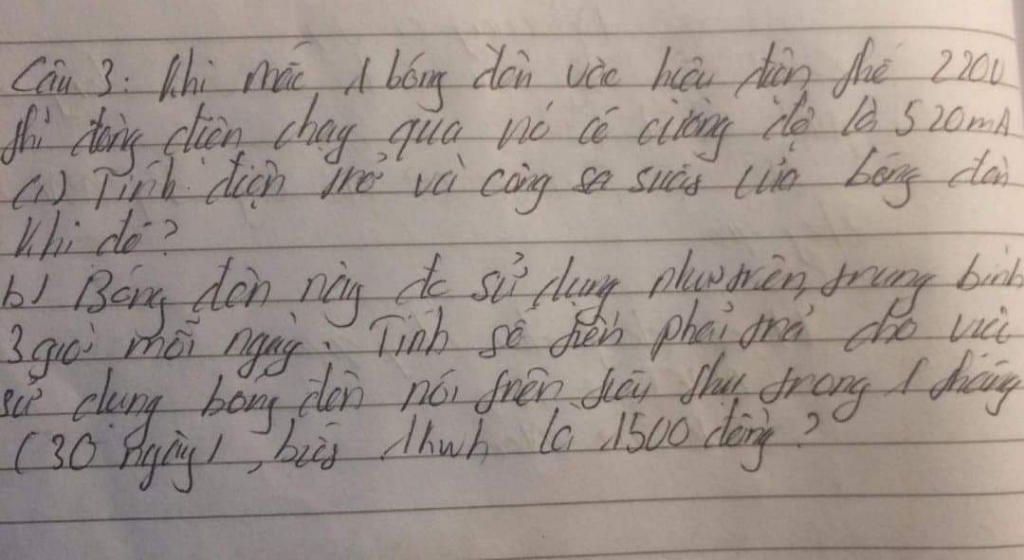 Câu 3: Khi mắc 1 bóng đèn vào hiệu điện thế 220V
thì dòng điện chạy qua nó có cường độ là 520mA
a) Tính điện trở và công sa suất của bóng đèn
khi đó?
b) Bóng đèn này đc sử dụng như trên, trung bình
3 giờ mỗi ngày. Tính số tiền phải trả cho việc
sử dụng bóng đèn nói trên tiêu thụ trong 1 tháng
(30 ngày), biết 1kwh là 1500 đồng?